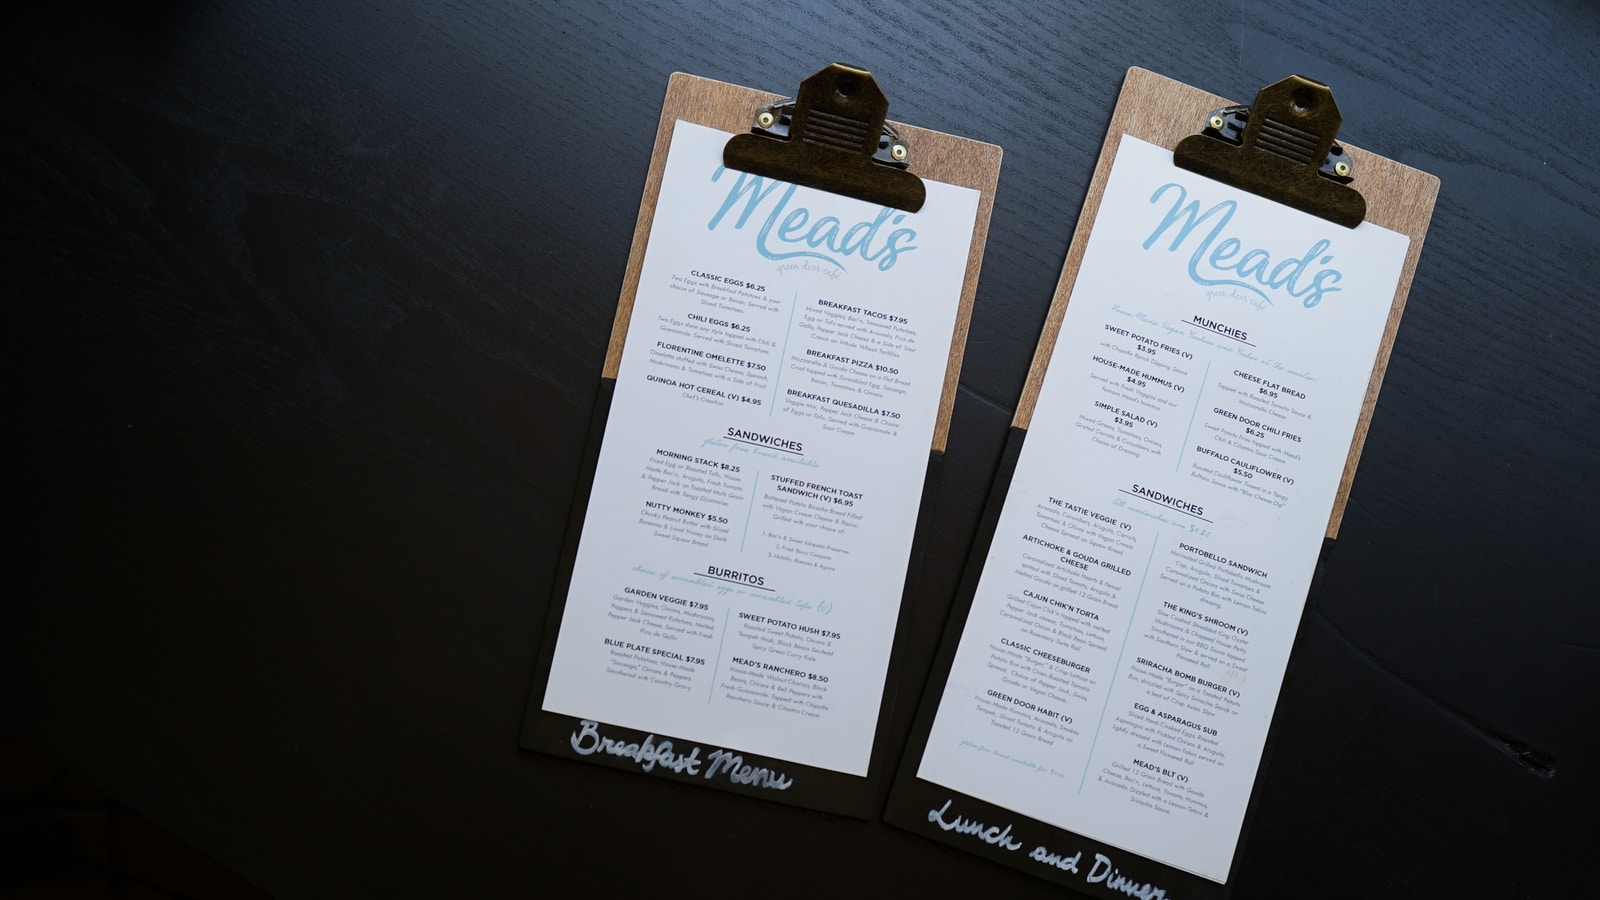 Mead's
green door cafe
CLASSIC EGGS $6.25
Two Eggs with Breakfast Potatoes & your
choice of Sausage or Bacon. Served with
Sliced Tomatoes.
CHILI EGGS $6.25
Two Eggs done any style topped with Chili &
Guacamole. Served with Sliced Tomatoes.
FLORENTINE OMELETTE $7.50
Omelette stuffed with Swiss Cheese, Spinach,
Mushrooms & Tomatoes with a Side of Fruit
QUINOA HOT CEREAL (V) $4.95
Chef's Creation
BREAKFAST TACOS $7.95
Mixed Veggies, Bac'n, Seasoned Potatoes,
Egg or Tofu served with Avocado, Pico de
Gallo, Pepper Jack Cheese & a Side of Sour
Cream on Whole Wheat Tortillas.
BREAKFAST PIZZA $10.50
Mozzarella & Gouda Cheese on a Flat Bread
Crust topped with Scrambled Egg, Sausage,
Bacon, Tomatoes & Onions.
BREAKFAST QUESADILLA $7.50
Veggie Mix, Pepper Jack Cheese & Choice
of Eggs or Tofu. Served with Guacamole &
Sour Cream
SANDWICHES
gluten free bread available
MORNING STACK $8.25
Fried Egg or Roasted Tofu, House-
Made Bac'n, Arugula, Fresh Tomato
& Pepper Jack on Toasted Multi Grain
Bread with Tangy Dijonnaise.
NUTTY MONKEY $5.50
Chunky Peanut Butter with Sliced
Bananas & Local Honey on Dark
Sweet Square Bread
STUFFED FRENCH TOAST
SANDWICH (V) $6.95
Battered Potato Brioche Bread Filled
with Vegan Cream Cheese & Panini-
Grilled with your choice of:
1. Bac'n & Sweet Jalapeño Preserve
2. Fresh Berry Compote
3. Nutella, Banana & Agave
BURRITOS
choice of scrambled eggs or scrambled tofu (V)
GARDEN VEGGIE $7.95
Garden Veggies, Onions, Mushrooms,
Peppers & Seasoned Potatoes, Melted
Pepper Jack Cheese. Served with Fresh
Pico de Gallo
BLUE PLATE SPECIAL $7.95
Roasted Potatoes, House-Made
"Sausage," Onions & Peppers
Smothered with Country Gravy
SWEET POTATO HUSH $7.95
Roasted Sweet Potato, Onions &
Tempeh Hash, Black Beans Sauteed
Spicy Green Curry Kale
MEAD'S RANCHERO $8.50
House-Made Walnut Chorizo, Black
Beans, Onions & Bell Peppers with
Fresh Guacamole. Topped with Chipotle
Ranchero Sauce & Cilantro Cream
Breakfast Menu
Mead's
green door cafe
MUNCHIES
House Made Vegan Cookies and Cakes at the counter!
SWEET POTATO FRIES (V)
$3.95
with Chipotle Ranch Dipping Sauce
HOUSE-MADE HUMMUS (V)
$4.95
Served with Fresh Veggies and our
famous Mead's hummus
SIMPLE SALAD (V)
$3.95
Mixed Greens, Tomatoes, Onions,
Grated Carrots & Cucumbers with
Choice of Dressing
CHEESE FLAT BREAD
$6.95
Topped with Roasted Tomato Sauce &
Mozzarella Cheese
GREEN DOOR CHILI FRIES
$6.25
Sweet Potato Fries topped with Mead's
Chili & Cilantro Sour Cream
BUFFALO CAULIFLOWER (V)
$5.50
Roasted Cauliflower Tossed in a Tangy
Buffalo Sauce with "Blue Cheese Dip"
SANDWICHES
All sandwiches are
THE TASTIE VEGGIE (V)
Avocado, Cucumbers, Arugula, Carrots,
Tomatoes & Olives with Vegan Cream
Cheese Spread on Square Bread
ARTICHOKE & GOUDA GRILLED
CHEESE
Caramelized Artichoke Hearts & Fennel
spread with Sliced Tomato, Arugula &
Melted Gouda on grilled 12 Grain Bread
CAJUN CHIK'N TORTA
Grilled Cajun Chik'n topped with melted
Pepper Jack cheese, Tomatoes, Lettuce,
Caramelized Onion & Black Bean Spread
on Rosemary Torta Roll
CLASSIC CHEESEBURGER
House-Made "Burger" & Crisp Lettuce on
Potato Bun with Oven-Roasted Tomato
Spread, Choice of Pepper Jack, Swiss,
Gouda or Vegan Cheese.
GREEN DOOR HABIT (V)
House-Made Hummus, Avocado, Smokey
Tempeh, Sliced Tomato & Arugula on
Toasted 12 Grain Bread
gluten free bread available for
PORTOBELLO SANDWICH
Marinated Grilled Portobello Mushroom
Cap, Arugula, Sliced Tomatoes &
Caramelized Onions with Swiss Cheese.
Served on a Potato Bun with Lemon-Tahini
dressing.
THE KING'S SHROOM (V)
Slow Cooked Shredded King Oyster
Mushrooms & Chopped House Patty
Smothered in our BBQ Sauce topped
with Southern Slaw & served on a Sweet
Flaxseed Roll
SRIRACHA BOMB BURGER (V)
House-Made "Burger" on a Toasted Potato
Bun, drizzled with Spicy Sriracha Sauce on
a bed of Crisp Asian Slaw
EGG & ASPARAGUS SUB
Sliced Hard-Cooked Eggs, Roasted
Asparagus with Pickled Onions & Arugula,
lightly dressed with Lemon-Tahini served on
a Sweet Flaxseed Roll
MEAD'S BLT (V)
Grilled 12 Grain Bread with Gouda
Cheese, Bac'n, Lettuce, Tomato, Hummus,
& Avocado. Drizzled with a Lemon-Tahini &
Sriracha Sauce.
Lunch and Dinner